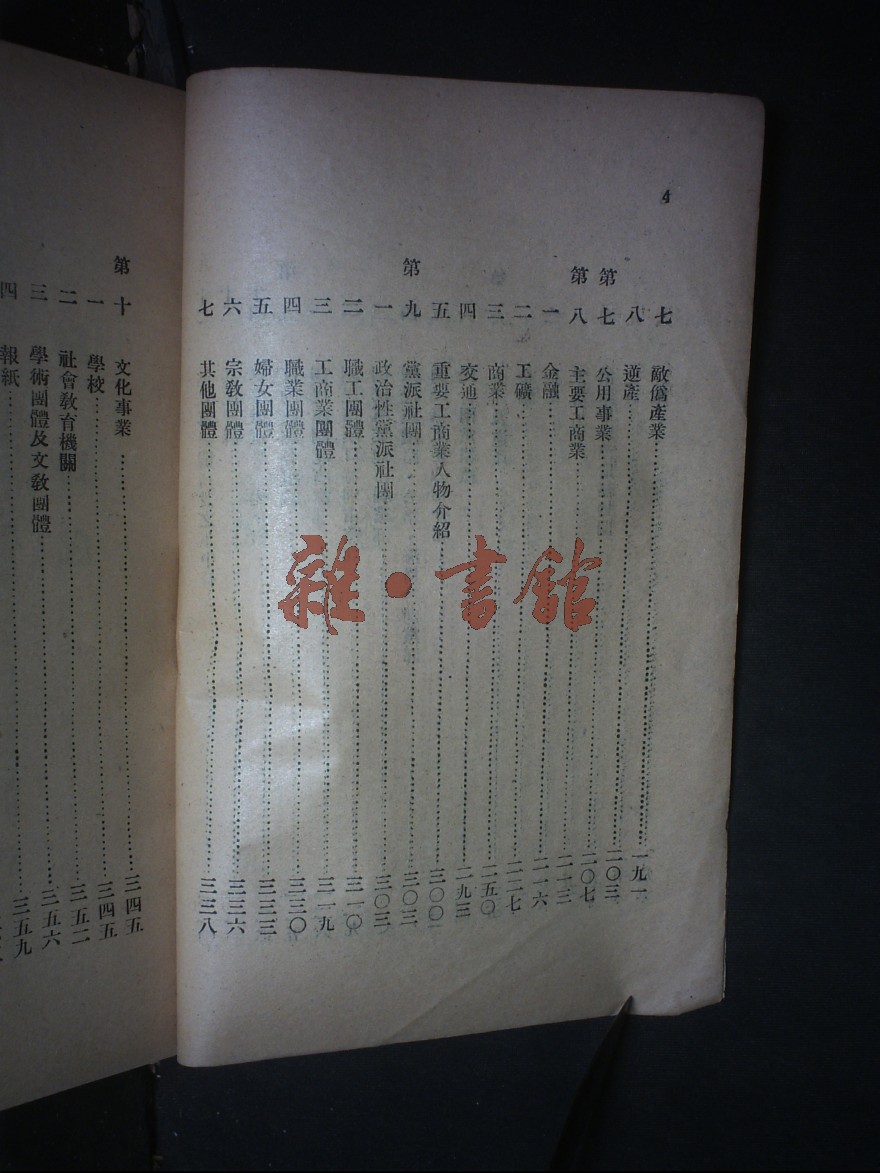 4
七 敵僞產業…一九一
八 逆產…二〇三
第七 公用事業…二〇七
第八 主要工商業…二一三
一 金融…二一六
二 工礦…二二七
三 商業…二五〇
四 交通…二九三
五 重要工商業人物介紹…三〇〇
第九 黨派社團…三〇三
一 政治性黨派社團…三〇三
二 職工團體…三一〇
三 工商業團體…三一九
四 職業團體…三三〇
五 婦女團體…三三三
六 宗敎團體…三三六
七 其他團體…三三八
第十 文化事業…三四五
一 學校…三四五
二 社會敎育機關…三五二
三 學術團體及文敎團體…三五六
四 報紙…三五九
雜·書館